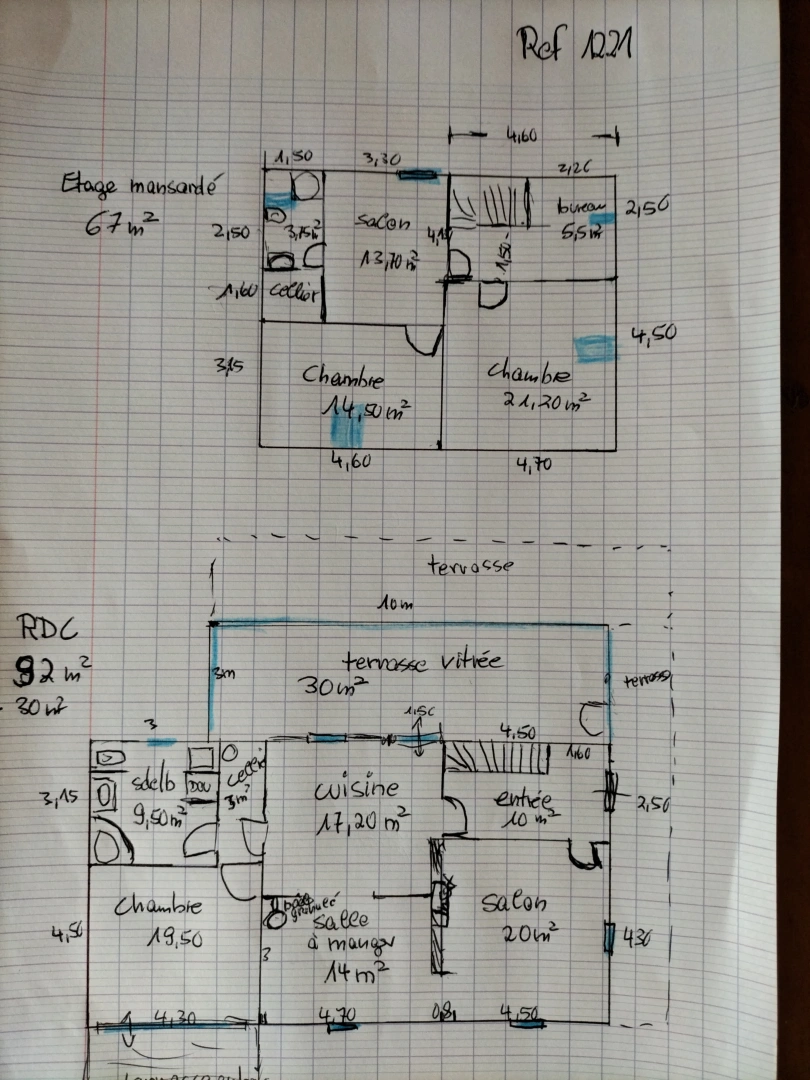 Ref 1221
4,60
1,50
3,30
2,20
Etage mansardé
67 m²
2,50
3,75m²
salon
13,70 m²
4,10
1,50
bureau
5,5m²
2,50
1,60
cellier
3,15
Chambre
14,50 m²
4,60
chambre
21,20 m²
4,50
4,70
terrasse
10m
RDC
92 m²
30m²
3m
terrasse vitrée
30m²
terrasse
1,50
4,50
1,60
3
3,15
sdelb
9,50m²
DOU
cellier
3m²
cuisine
17,20 m²
entrée
10 m²
2,50
4,50
Chambre
19,50
4,30
poêle
granulé
salle
à manger
14 m²
3
4,70
salon
20m²
430
4,50